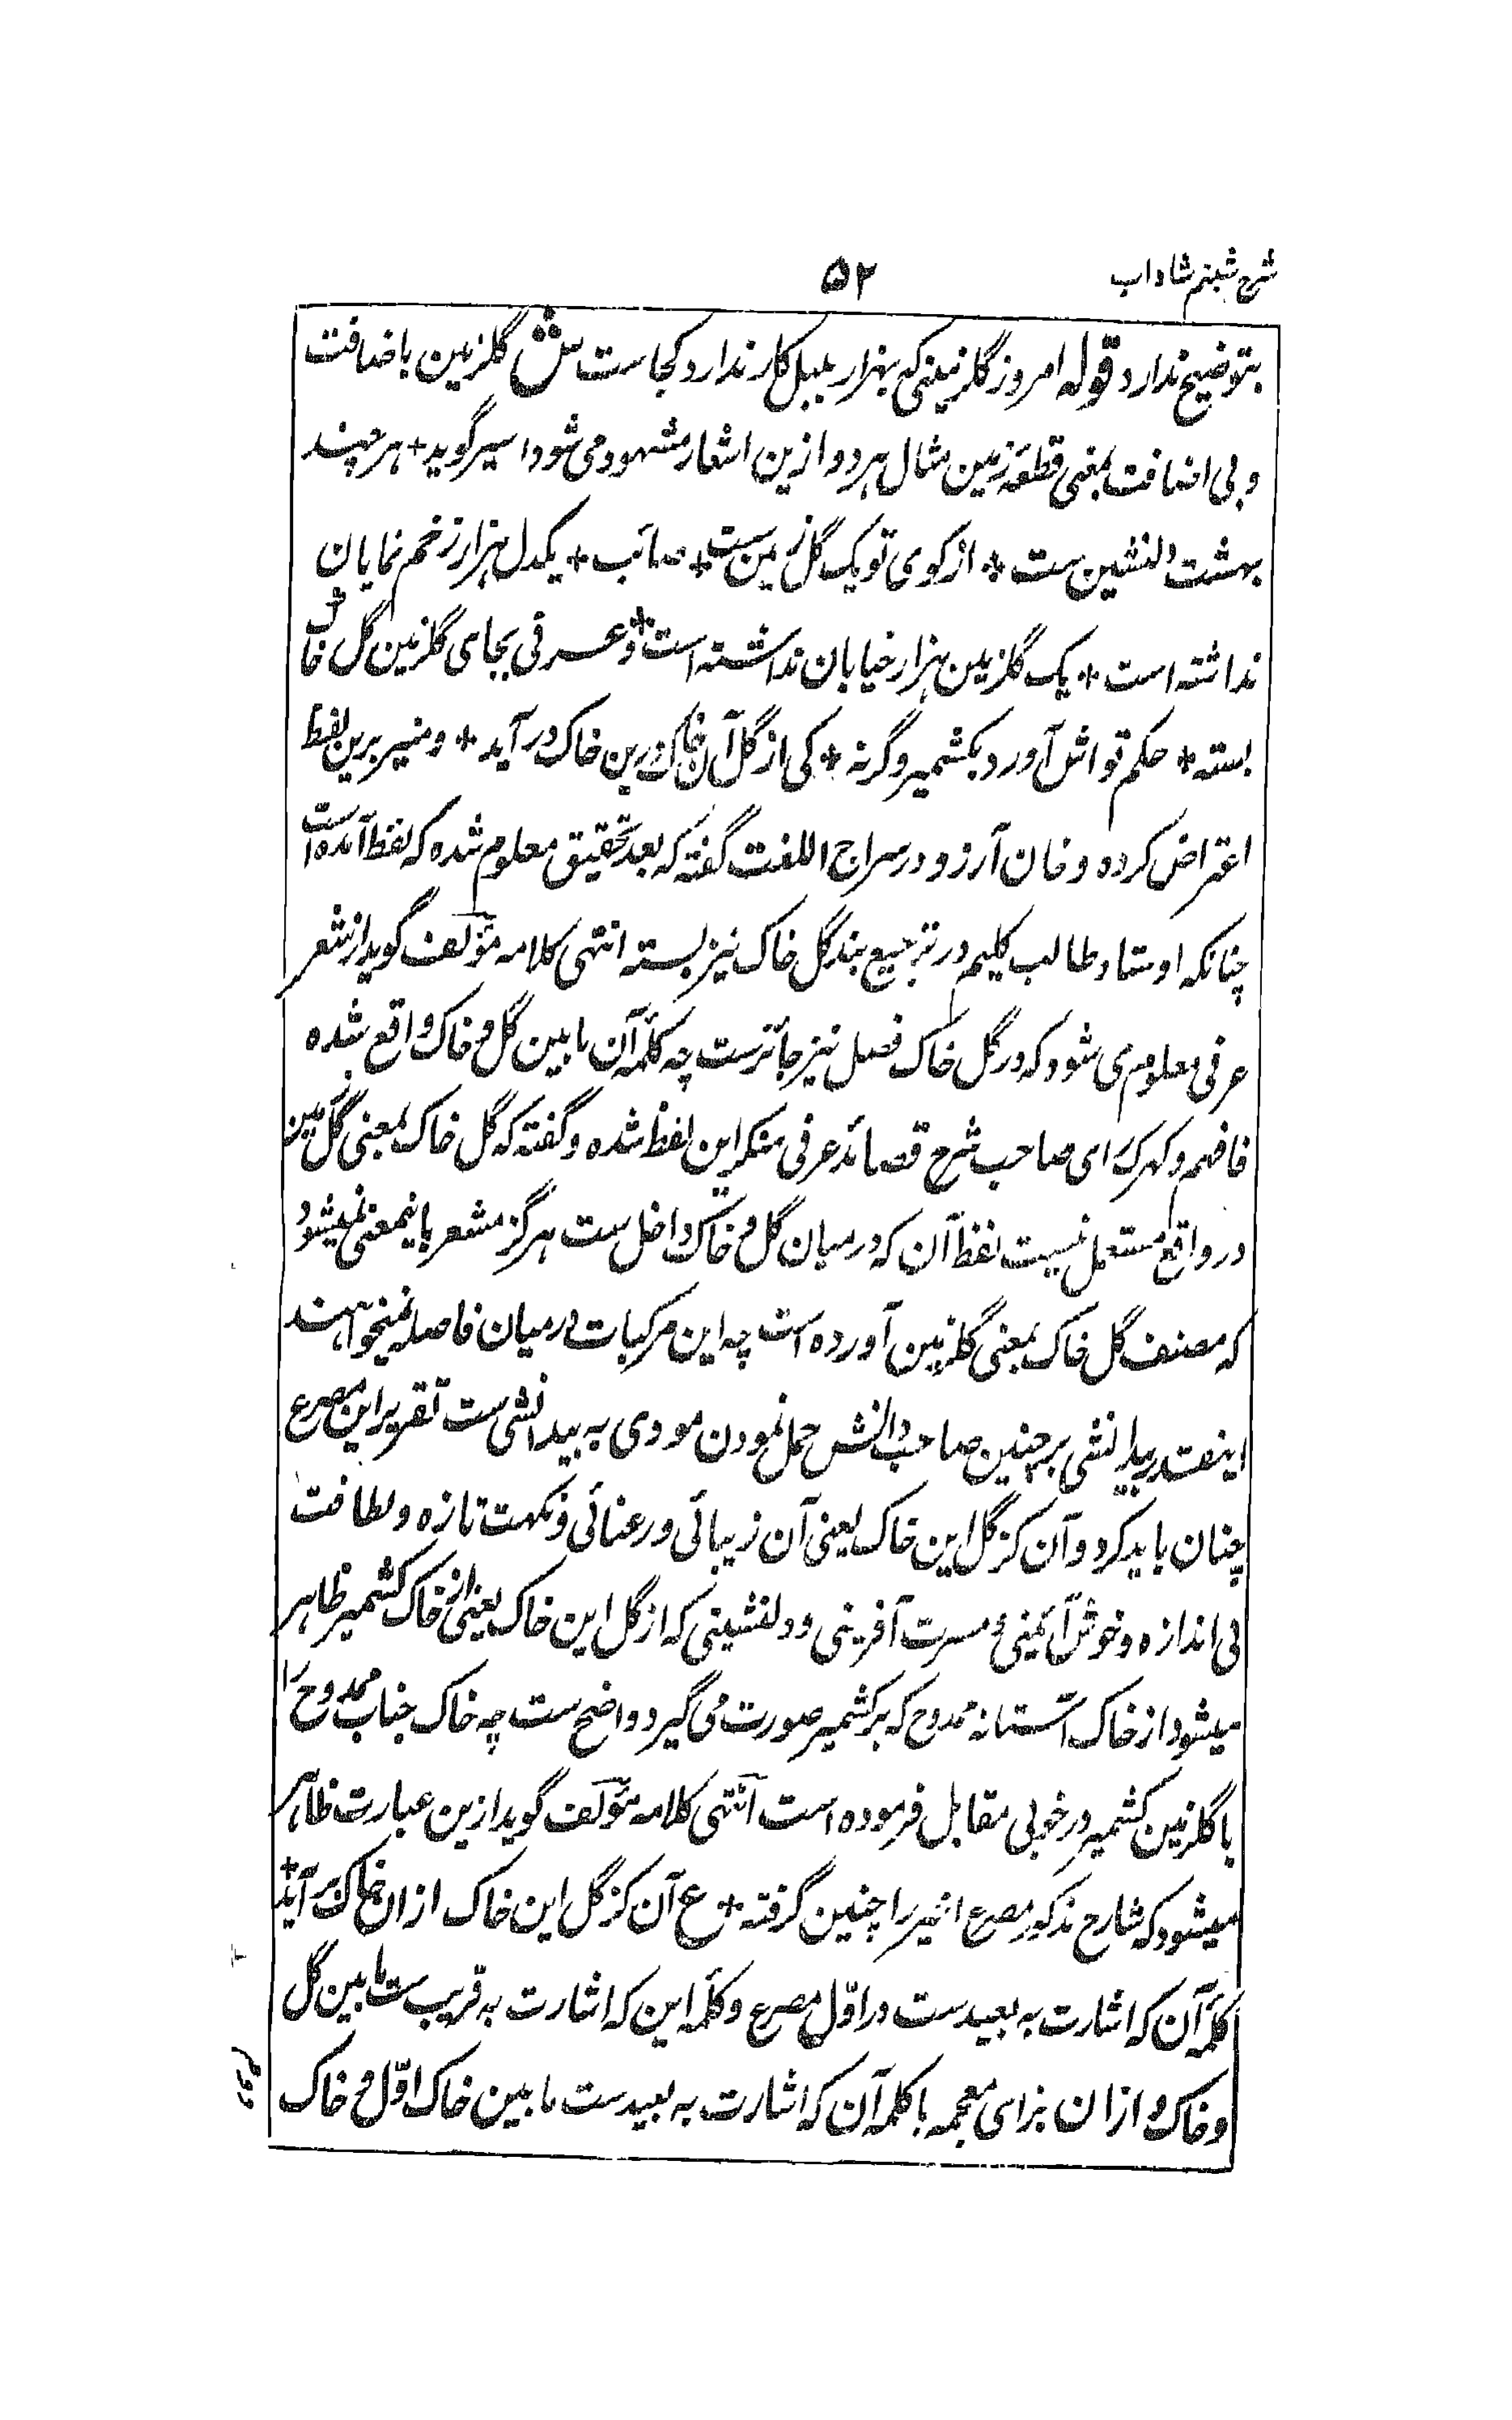 شرح شبنم شاداب
۵۲
بتوضیح ندارد قوله امروز گلزمینی که بهزار بلبل کار ندارد کجاست ش گلزمین باضافت
و بی اضافت بمعنی قطعه زمین مثال هر دو ازین اشعار مشهود می شود اسیر گوید + هر چند
بهشت دلنشین ست + از کوی تو یک گل زمین ست + صائب + یکدل هزار زخم نمایان
نداشته است + یک گلزمین هزار خیابان نداشته است + و عرفی بجای گلزمین گل خاک
بسته + حکم تو اش آورد بکشمیر وگرنه + کی از گل آن خاک درین خاک در آید + و منیر برین لفظ
اعتراض کرده و خان آرزو در سراج اللغت گفته که بعد تحقیق معلوم شده که لفظ آمده است
چنانکه اوستاد طالب کلیم در ترجیع بند گل خاک نیز بسته انتهی کلامه مؤلف گوید از شعر
عرفی معلوم می شود که در گل خاک فصل نیز جائزست چه کلمه آن مابین گل و خاک واقع شده
فافهم و کهرک ای صاحب شرح قصائد عرفی منکر این لفظ شده و گفته که گل خاک بمعنی گل زمین
در واقع مستعمل نیست لفظ آن که درمیان گل و خاک داخل ست هرگز مشعر باینمعنی نمیشود
که مصنف گل خاک بمعنی گلزمین آورده است چه این مرکبات درمیان فاصله نمیخواهند
اینقدر بیدانشی بر چنین صاحب دانش حمل نمودن مودی به بیدانشی ست تقریر این مصرع
چنان باید کرد و آن کز گل این خاک یعنی آن زیبائی و رعنائی و نکهت تازه و لطافت
بی اندازه و خوش آئینی و مسرت آفرینی و دلنشینی که از گل این خاک یعنی از خاک کشمیر ظاهر
میشود از خاک آستانه ممدوح که بر کشمیر صورت می گیرد واضح ست چه خاک جناب ممدوح را
با گلزمین کشمیر در خوبی مقابل فرموده است انتهی کلامه مؤلف گوید ازین عبارت ظاهر
میشود که شارح مذکور مصرع اخیر را چنین گرفته + ع آن کز گل این خاک ازان خاک برآید +
کلمه آن که اشارت به بعیدست در اوّل مصرع و کلمه این که اشارت به قریب ست مابین گل
و خاک و ازان بزای معجمه با کلمه آن که اشارت به بعیدست مابین خاک اوّل و خاک